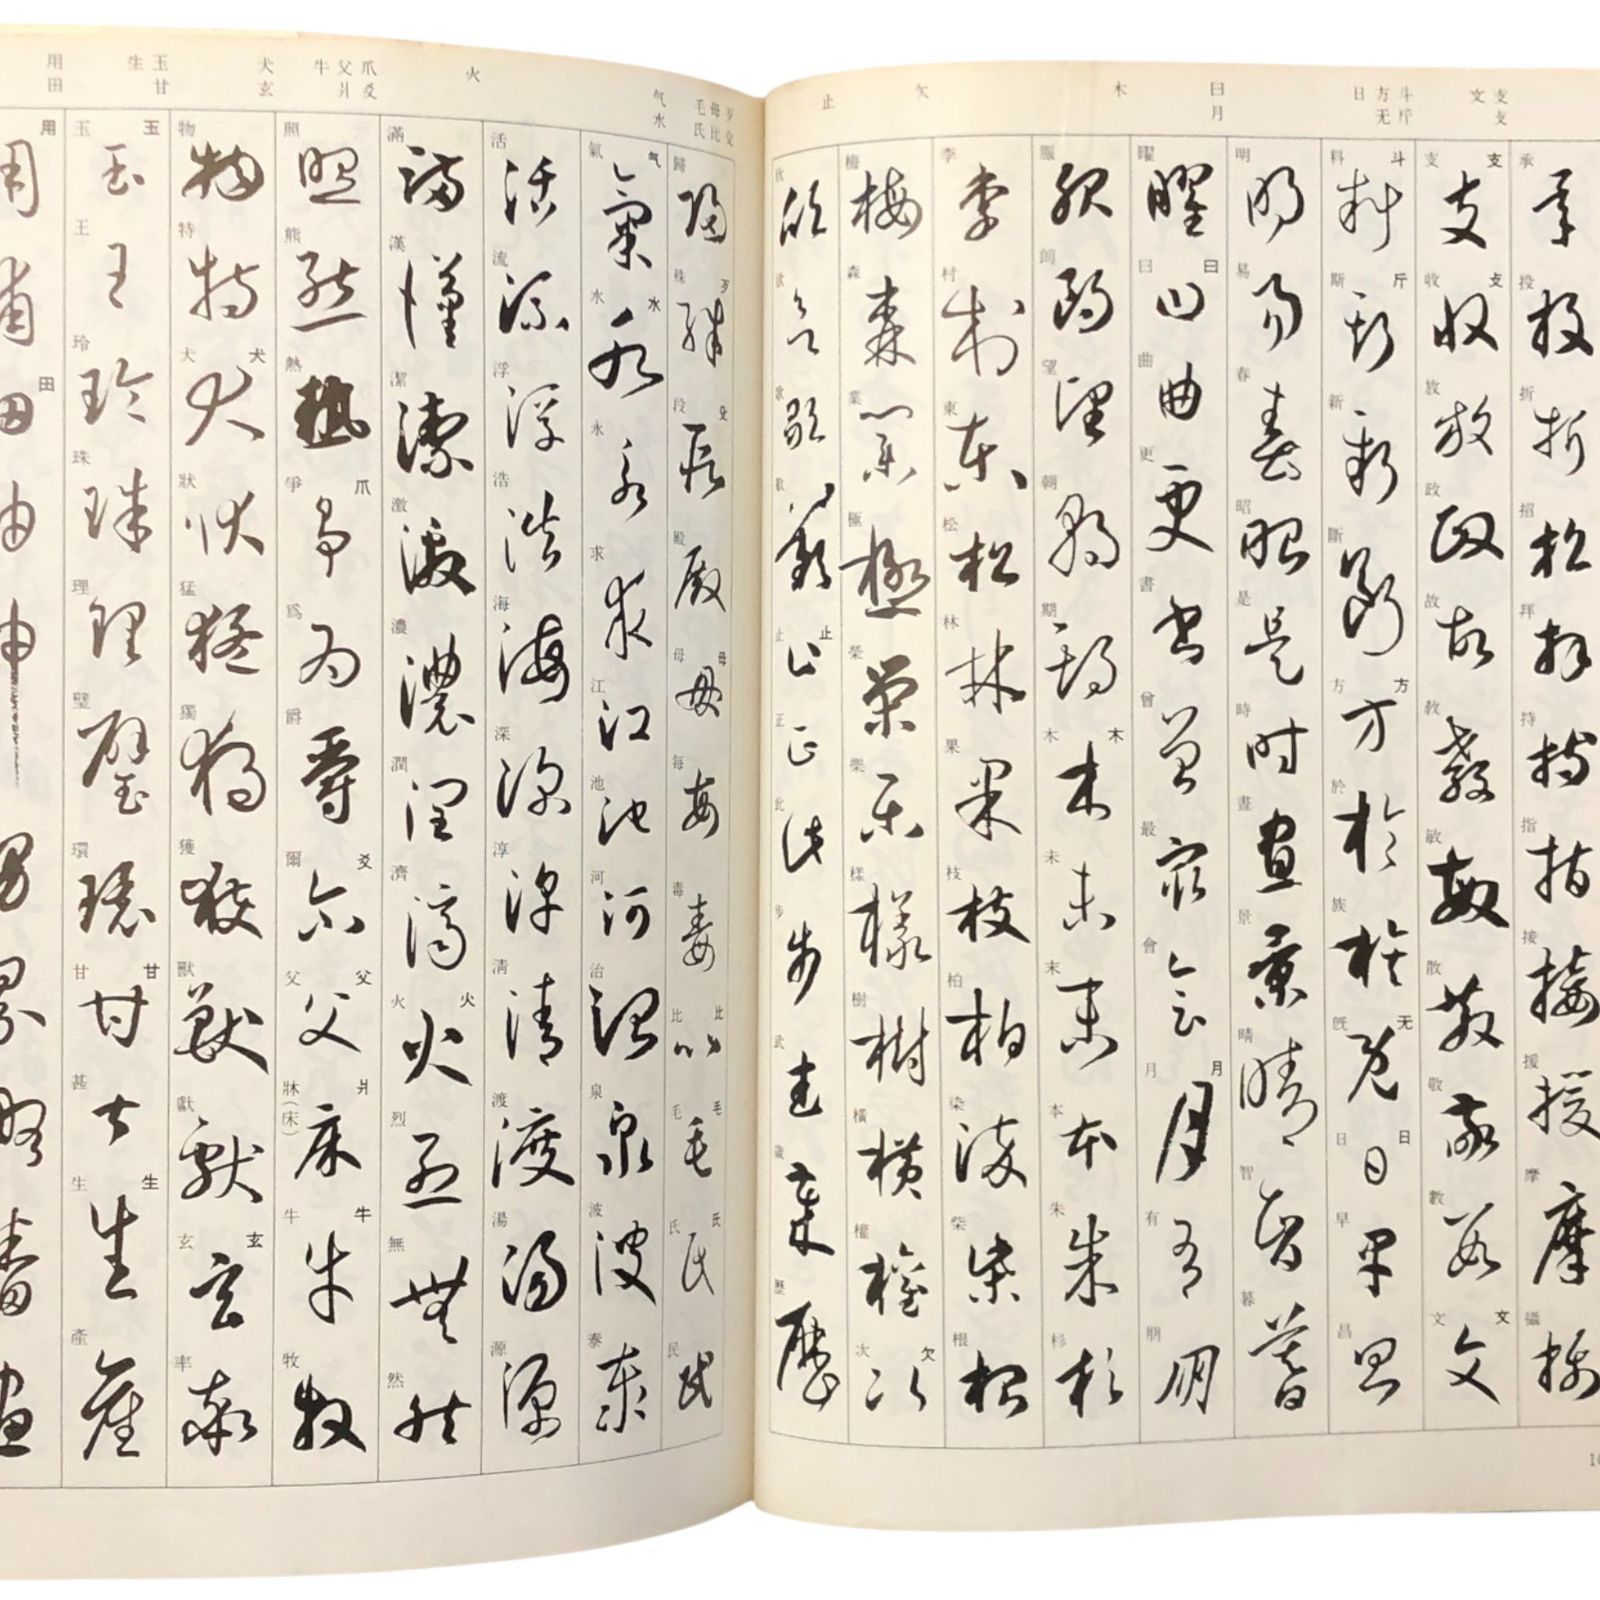 支攴 文 斗斤 方无 日 曰月 木 欠 止
承 投 折 招 拜 持 指 接 援 摩 攝
支 收 放 政 故 敎 敏 散 敬 數 文
料 斯 新 斷 方 於 族 旣 日 早 昌
明 易 春 昭 是 時 晝 景 晴 智 暮
曜 曰 曲 更 書 曾 最 會 月 有 朋
服 朗 望 朝 期 木 未 末 本 朱 杉
李 村 東 松 林 果 枝 柏 染 柴 根
梅 森 業 極 榮 樂 樣 樹 橫 權 次
欣 欲 歌 歡 止 正 此 步 武 歲 歷
歹殳 母比 毛氏 气水 火 爪爻 父爿 牛 犬玄 玉甘 生 用田
歸 殊 段 殿 母 每 毒 比 毛 氏 民
氣 水 永 求 江 池 河 治 泉 波 泰
活 流 浮 浩 海 深 淳 清 渡 湯 源
滿 漢 潔 激 濃 潤 濟 火 烈 無 然
照 熊 熱 爭 爲 爵 爾 父 牀(床) 牛 牧
物 特 犬 狀 猛 獨 獲 獸 獻 玄 率
玉 王 玲 珠 理 璧 環 甘 甚 生 產
用 田
10